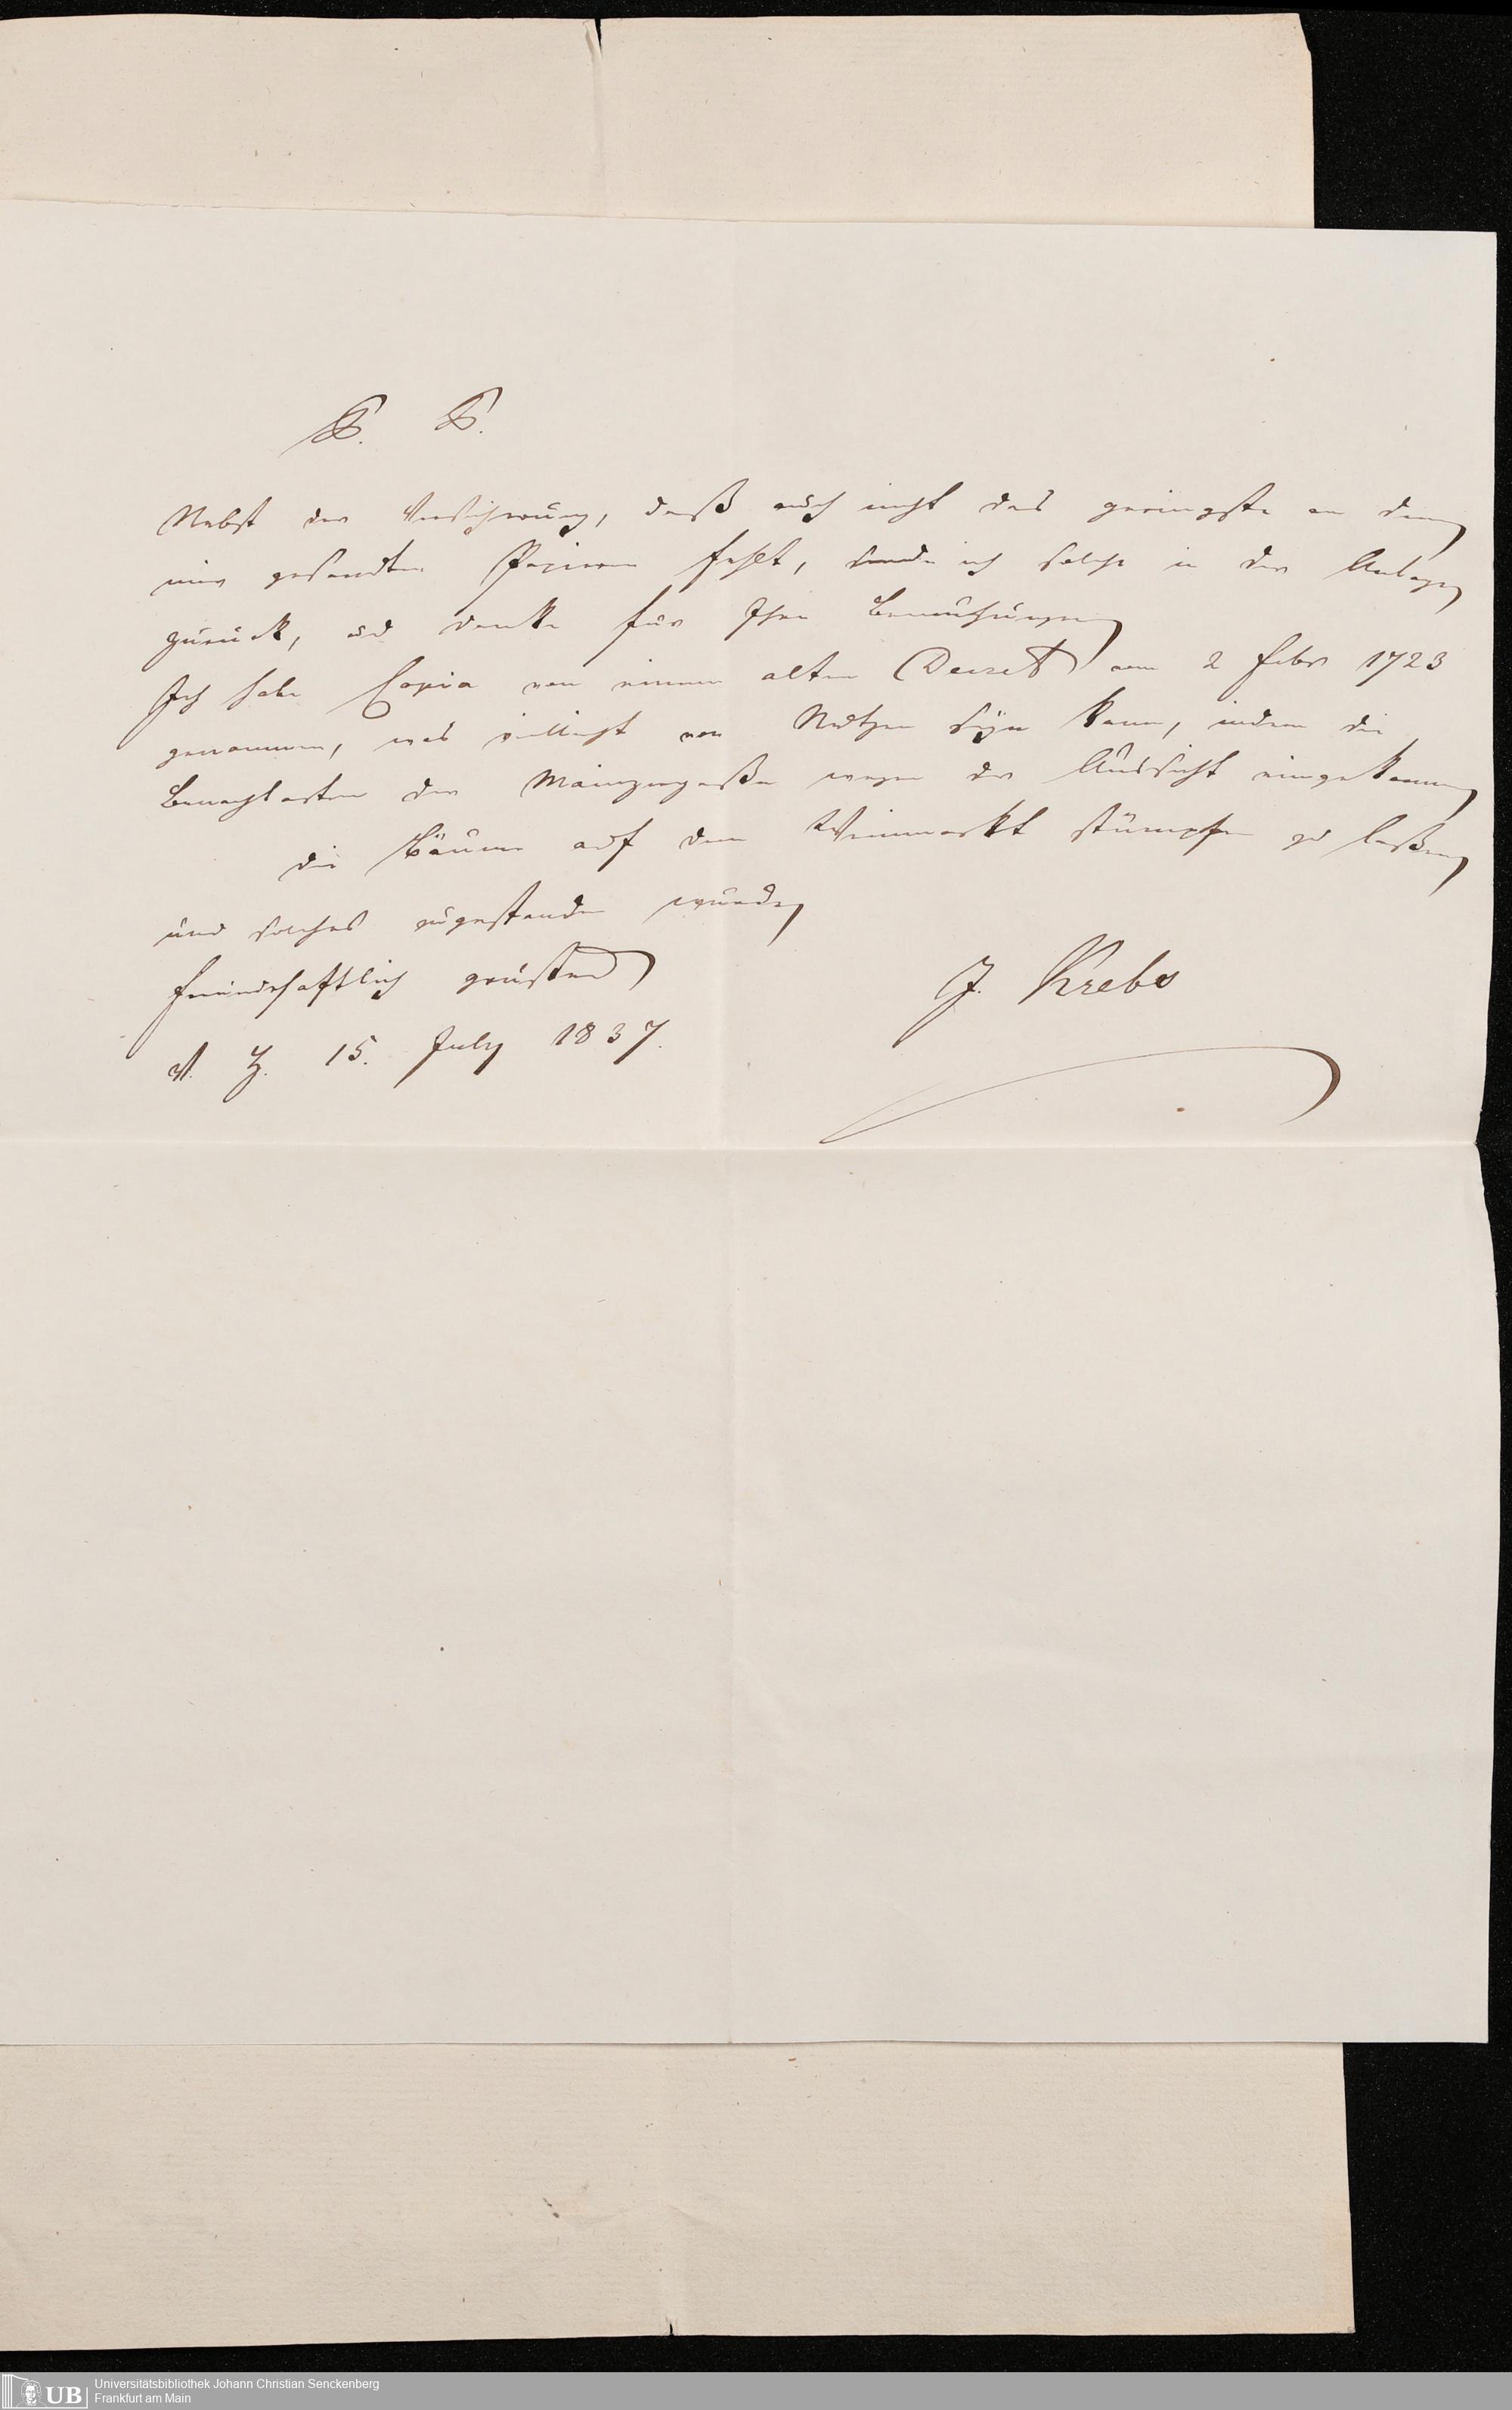 P. P.
Nebst der Versicherung, daß auch nicht das geringste an denen
mir gesandten Papieren fehlt, sende ich solche in der Anlage
zurück, und danke für Ihre Bemühungen
Ich habe Copia von einem alten Decret vom 2 Febr 1723
genommen, was vielleicht von Nutzen seyn kann, indem die
Benachbarten der Mainzergaße wegen der Aussicht eingekommen
die Bäume auf dem Weinmarkt stümpfen zu laßen
und solches zugestanden wurde
freundschaftlich grüßend
J. Krebs
v. H. 15. July 1837.
UB
Universitätsbibliothek Johann Christian Senckenberg
Frankfurt am Main